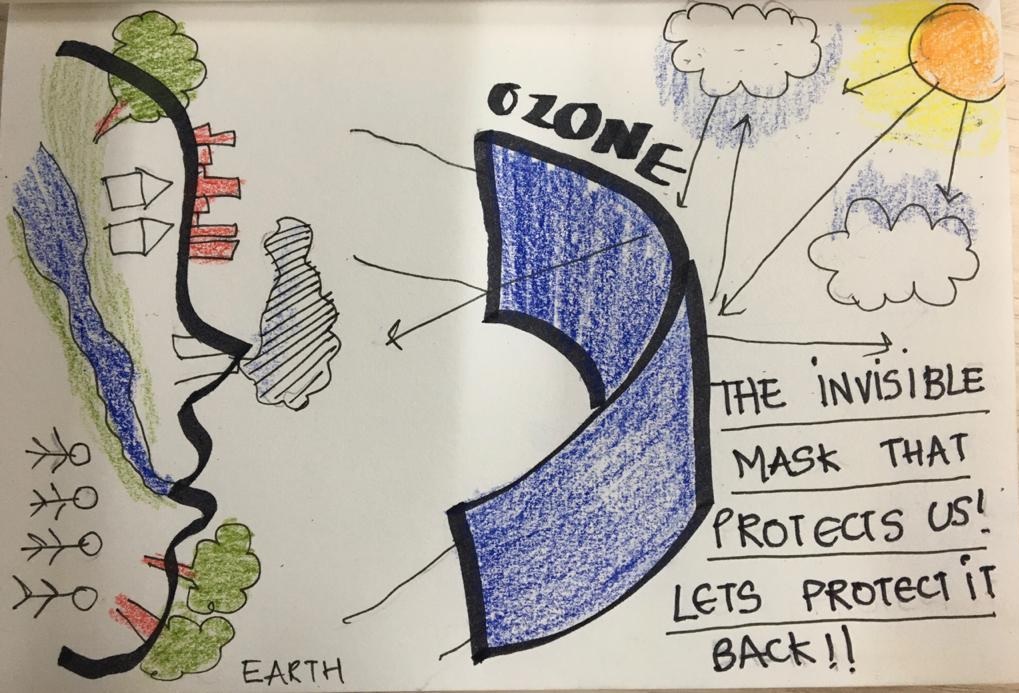 OZONE
THE INVISIBLE
MASK THAT
PROTECTS US!
LETS PROTECT IT
BACK!!
EARTH